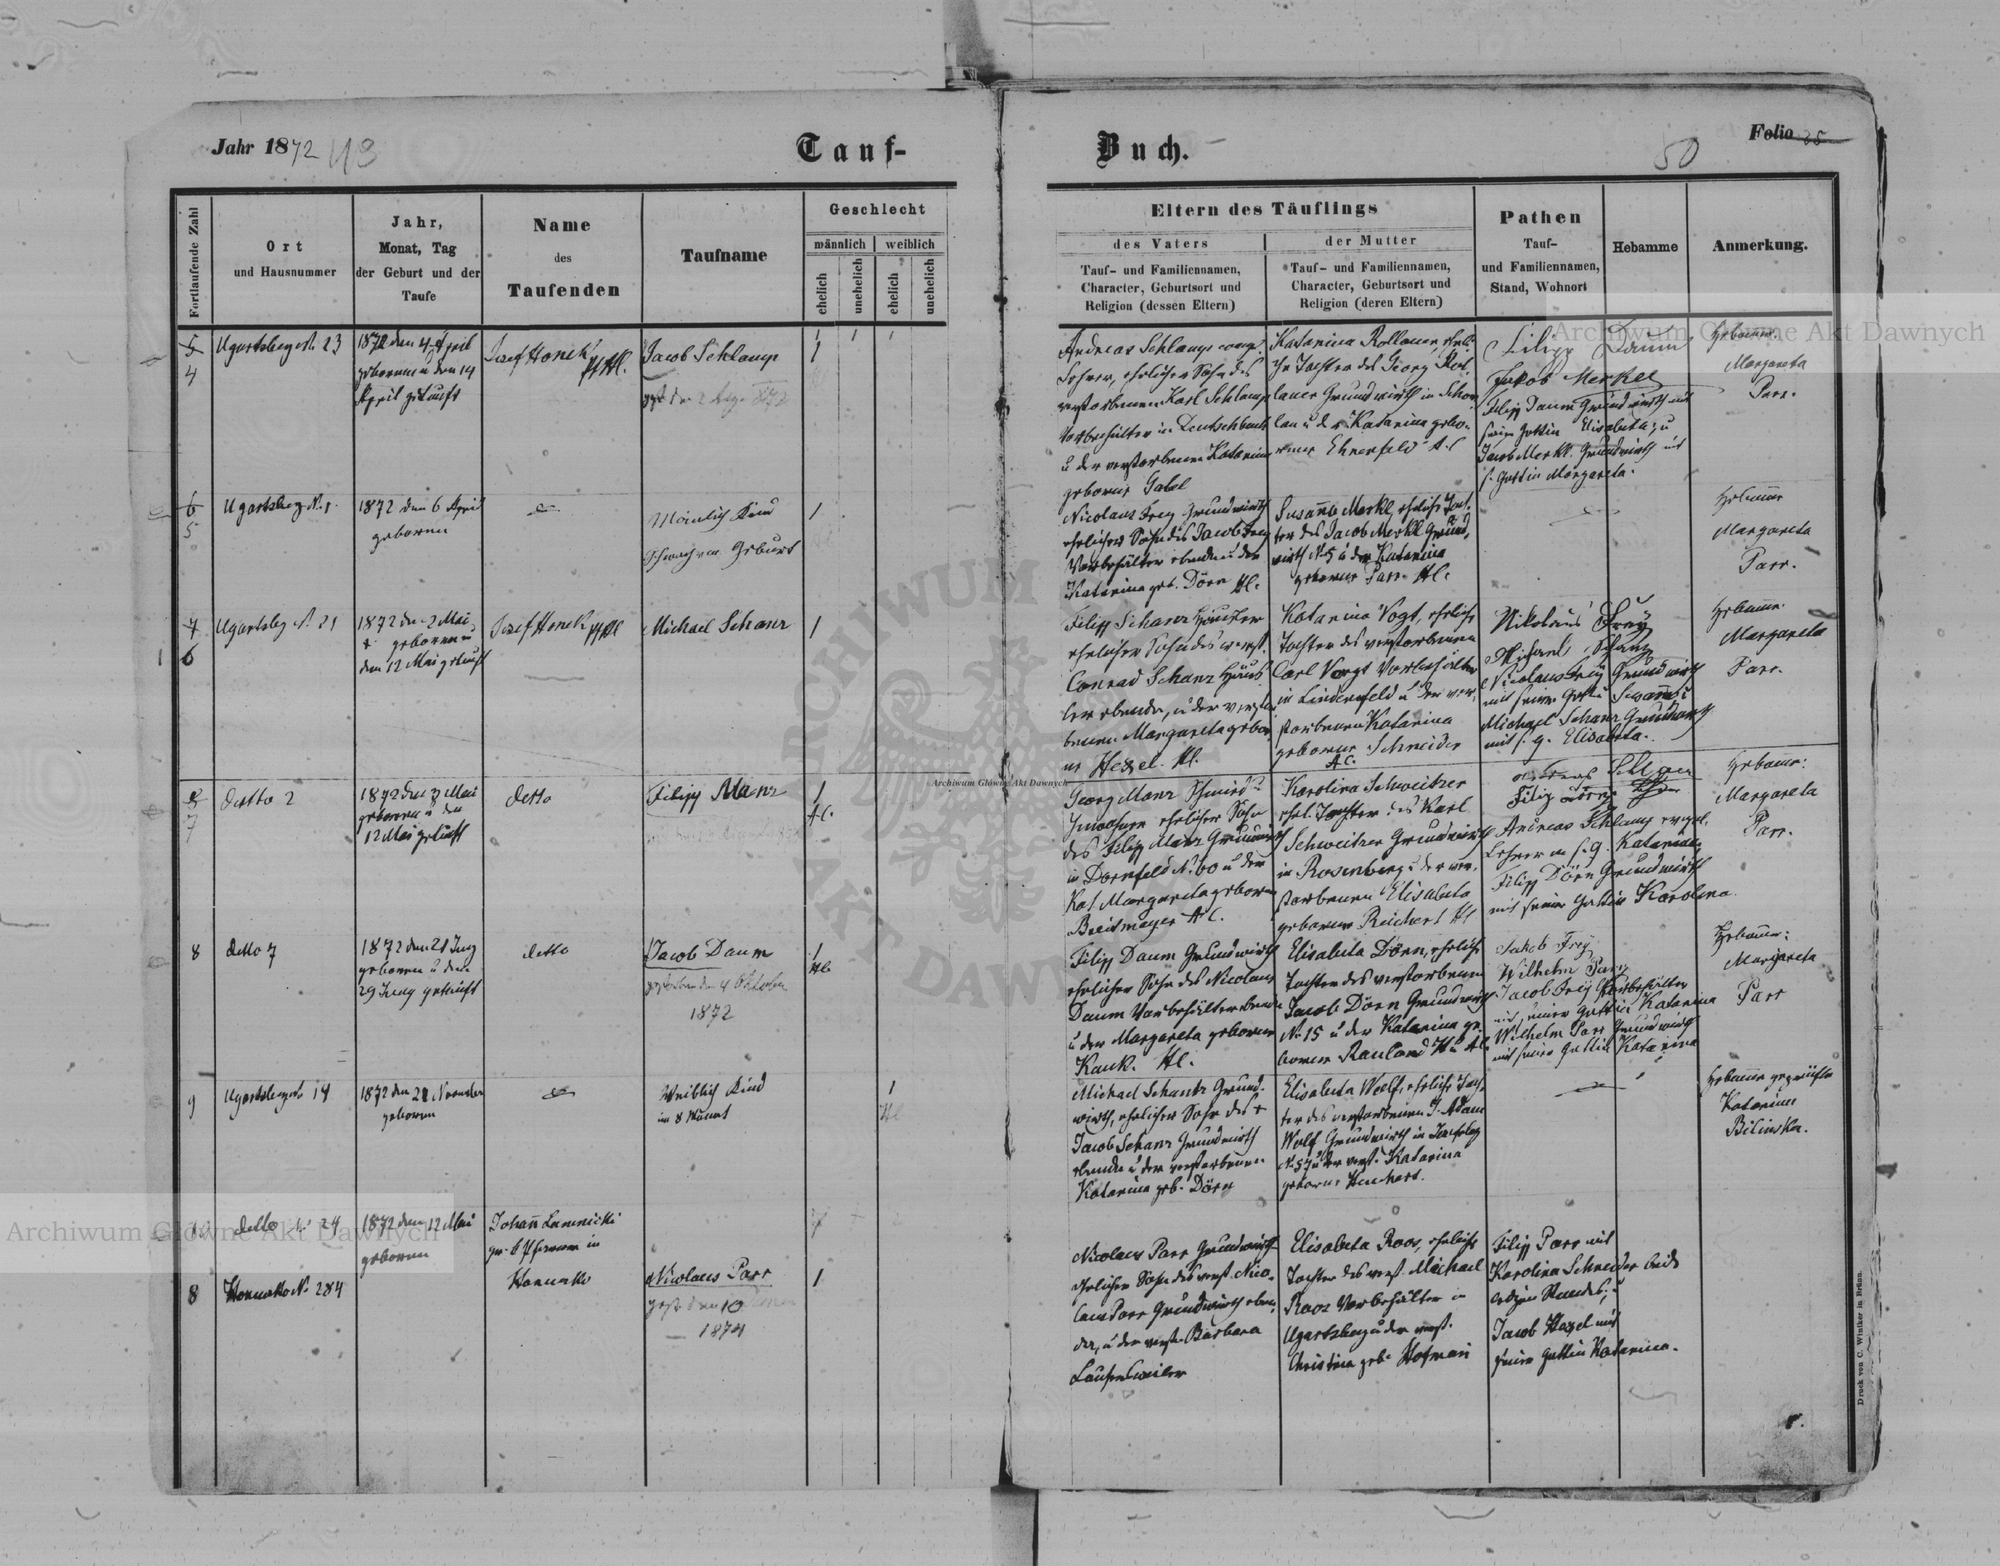 Jahr 1872
Tauf-
Buch.
50
Folio 35
Fortlaufende Zahl
Ort
und Hausnummer
Jahr,
Monat, Tag
der Geburt und der
Taufe
Name
des
Taufenden
Taufname
Geschlecht
männlich
weiblich
ehelich
unehelich
ehelich
unehelich
Eltern des Täuflings
des Vaters
Tauf- und Familiennamen,
Character, Geburtsort und
Religion (dessen Eltern)
der Mutter
Tauf- und Familiennamen,
Character, Geburtsort und
Religion (deren Eltern)
Pathen
Tauf-
und Familiennamen,
Stand, Wohnort
Hebamme
Anmerkung.
5
4
Ugartsberg N. 23
1872 den 4 April
geboren u den 14
April getauft
Josef Honek
Jacob Schlamp
1
Andreas Schlamp
Lehrer, ehelicher Sohn des
verstorbenen Karl Schlamp
Vorbehälter in Deutschbach
u der verstorbenen Katarina
geborne Gabel
Katarina Rollauer
Tochter des Georg Rol-
lauer Grundwirth in
u der Katarina gebo-
rene Ehrenfeld A.C
Filipp Daum
Jakob Merkel
Filipp Daum Grundwirth mit
seine Gattin Elisabeta, u
Jacob Merkl Grundwirth mit
s. Gattin Margareta.
Hebamme
Margareta
Parr.
6
5
Ugartsberg N. 1
1872 den 6 April
geboren
Mänlich Kind
Geburt
1
Nicolaus Frey Grundwirth
ehelicher Sohn des Jacob Frey
Vorbehälter ebenda u der
Katarina geb. Dörn HC.
Susanna Merkl eheliche Toch-
ter des Jacob Merkl Grund-
wirth N 5 u der Katarina
geborne Parr HC.
Hebamme
Margareta
Parr.
7
6
Ugartsbg N. 21
1872 den 2 Mai
geboren u
den 12 Mai getauft
Josef Honek
Michael Schanz
1
Filipp Schanz Häusler
ehelicher Sohn des verst.
Conrad Schanz Häus-
ler ebenda, u der verstor-
benen Margareta gebor-
ne Hezel. HC.
Katarina Vogt, eheliche
Tochter des verstorbenen
Carl Voegt Vorbehälter
in Lindenfeld u der ver-
storbenen Katarina
geborene Schneider
AC.
Nikolaus Frey
Michael Schanz
Nicolaus Frey Grundwirth
mit seine Gattin Susanna u
Michael Schanz Grundwirth
mit s. g. Elisabeta.
Hebamme
Margareta
Parr.
8
7
detto 2
geboren u den
12 Mai getauft
detto
Filipp Manz
1
HC.
Georg Manz Schmied
Inwohner ehelicher Sohn
des Filipp Manz Grundwirth
in Dornfeld N. 60 u der
Margareta geborne
Breitmeyer HC.
Karolina Schweitzer
ehel. Tochter des Karl
Schweitzer Grundwirth
in Rosenberg u der ver-
storbenen Elisabeta
geborene Reichert HC
Andreas Schlamp evgel.
Lehrer m s. g. Katarina,
Filipp Dörn Grundwirth
mit seine Gattin Karolina.
Hebamme:
Margareta
Parr.
8
detto 7
1872 den 21 Juny
geboren u den
29 Juny getauft
detto
Jacob Daum
gestorben den 4 Oktober
1872
1
HC
Filipp Daum Grundwirth
ehelicher Sohn des Nicolaus
Daum Vorbehälter ebenda
u der Margareta geborne
Kauk. HC.
Elisabeta Dörn, eheliche
Tochter des verstorbenen
Jacob Dörn Grundwirth
No 15 u der Katarina ge-
borene Rauland HC
Jakob Frey
Wilhelm Parr
Jacob Frey Vorbehälter
mit seiner Gattin Katarina
Wilhelm Parr Grundwirth
mit seine Gattin Katarina
Hebamme:
Margareta
Parr
9
Ugartsberg N 14
1872 den 21 November
geboren
Weiblich Kind
im 8 Monat
1
HC
Michael Schantz Grund-
wirth, ehelicher Sohn des
Jacob Schanz Grundwirth
ebenda u der verstorbenen
Katarina geb. Dörn
Elisabeta Wolf, eheliche Toch-
ter des verstorbenen J. Adam
Wolf Grundwirth in Josefsberg
N. 57 u der verst. Katarina
geborne
Hebamme geprüfte
Katarina
Bilinska.
10
detto N. 24
1872 den 12 Mai
geboren
Johann Lawnicki
gr. k Pfarrer in
8
Horucko N. 284
Horucko
Nicolaus Parr
gest. den 10
1874
1
Nicolaus Parr Grundwirth
ehelicher Sohn des verst. Nico-
laus Parr Grundwirth eben-
da, u der verst. Barbara
Laufersweiler
Elisabeta Roos, eheliche
Tochter des verst. Michael
Roos Vorbehälter in
Ugartsberg u der verst.
Christina geb. Hofman
Filipp Parr mit
Karolina Schneider beide
ledigen Standes, u
Jacob Hezel mit
seine Gattin Katarina.
Druck von C. Winiker in Brünn.
Archiwum Główne Akt Dawnych
Archiwum Główne Akt Dawnych
Archiwum Główne Akt Dawnych
ARCHIWUM
AKT DAWNYCH